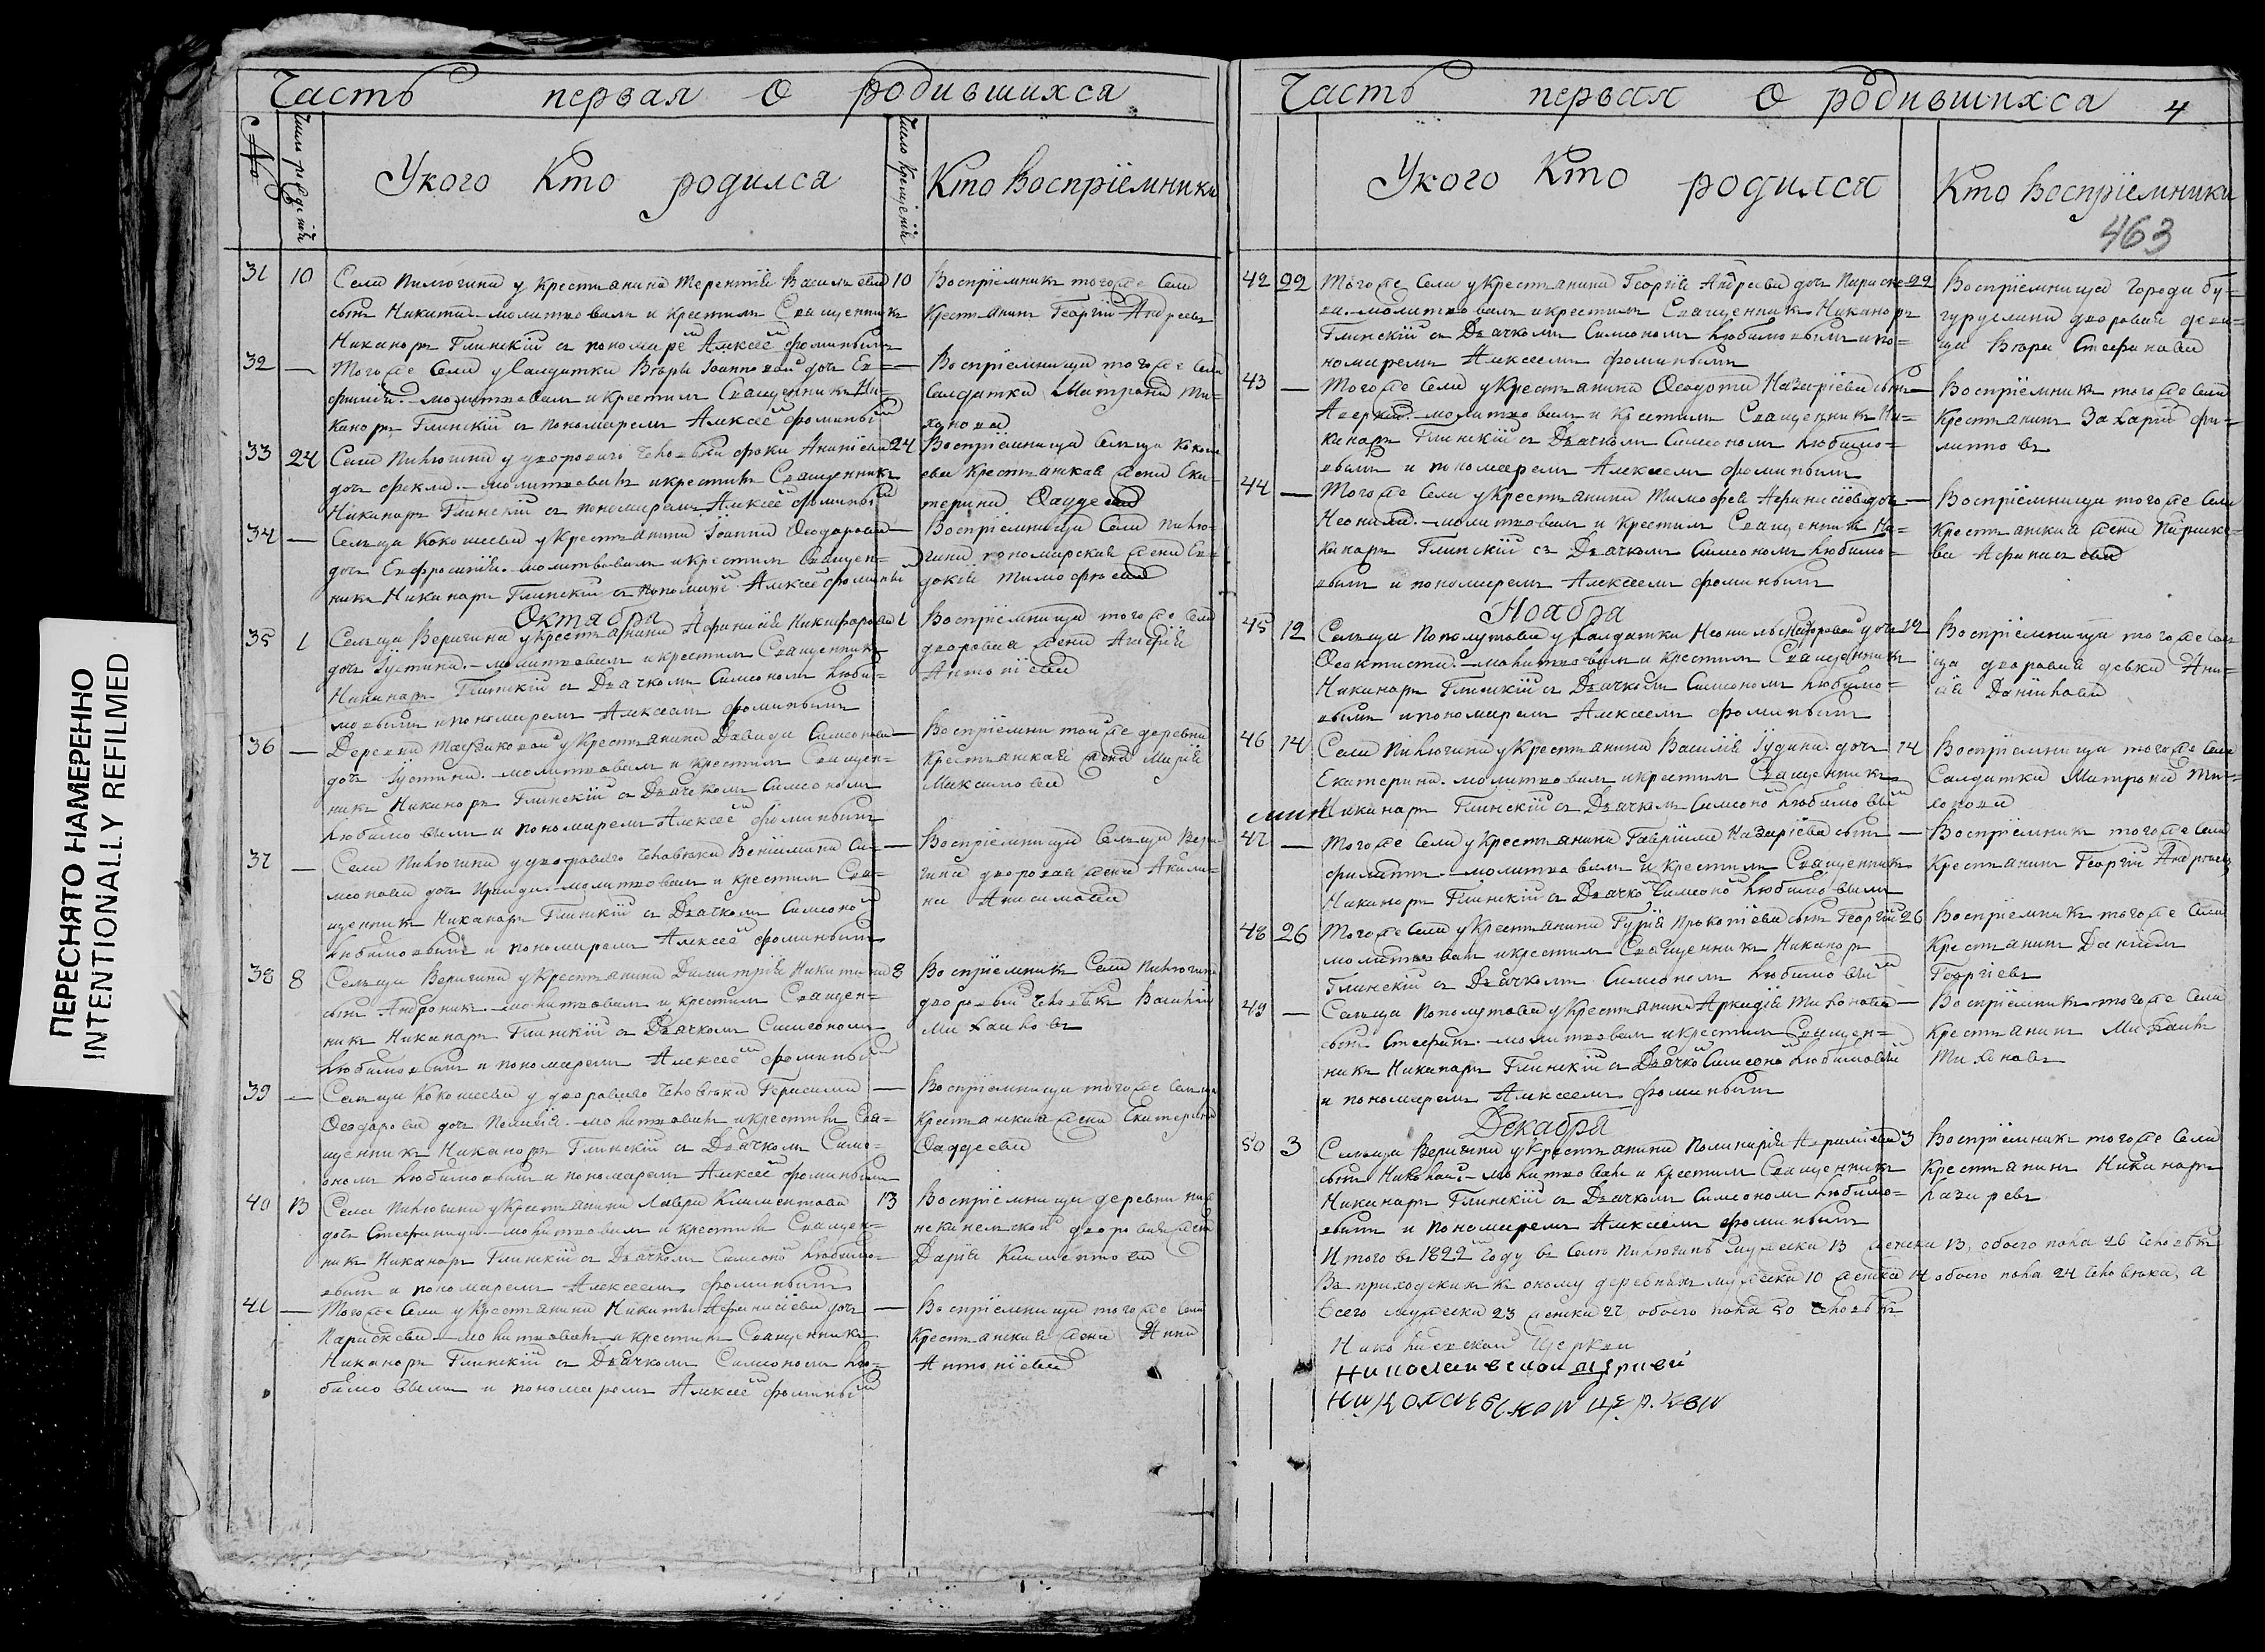 ПЕРЕСНЯТО НАМЕРЕННО
INTENTIONALLY REFILMED
Часть первая О родившихся
№
Число рождений
Укого Кто родился
Число крещений
Кто восприемники
31 10 Села Пилюгина у крестьянина Терентия Васильева 10
сынъ Никита. молитвовалъ и крестилъ Священникъ
Никаноръ Глинскїй съ пономаре Алексее Фоминымъ
Восприемникъ тогоже Села
Крестьянинъ Георгїй Андреевъ
32 — Тогоже Села у Салдатки Вѣры Iоанновой дочь Ев= —
фимия. молитвовалъ и крестилъ Священникъ Ни=
каноръ Глинскїй съ пономаремъ Алексее Фоминымъ
Восприемница тогоже Села
Салдатка Матрона Ти=
хонова
33 24 Села Пилюгина у двороваго Человека Фоки Ананїева 24
дочь Фекла. молитвовалъ и крестилъ Священникъ
Никаноръ Глинскїй съ пономаремъ Алексее Фоминымъ
Восприемница Сельца Кокоше
ева крестьянская жена Ека=
терина Фаддеева
34 — Сельца Кокошеева у крестьянина Iоанна Феодорова —
дочь Евфросинїя. молитвовалъ и крестилъ Священ=
никъ Никаноръ Глинскїй съ пономаре Алексее Фоминым
Восприемница Села Пилю=
гина пономарская жена Ев=
докїя Тимофеева
Октября
35 1 Сельца Веригина у крестьянина Афанасїя Никифорова 1
дочь Iустина. молитвовалъ и крестилъ Священникъ
Никаноръ Глинскїй съ Дьячкомъ Симеономъ Люби=
мовымъ и пономаремъ Алексеемъ Фоминымъ
Восприемница тогоже Села
дворовая жена
Антонїева
36 — Деревни у крестьянина Давида Симеонова —
дочь Iустина. молитвовалъ и крестилъ Священ=
никъ Никаноръ Глинскїй съ Дьячкомъ Симеономъ
Любимовымъ и пономаремъ Алексее Фоминымъ
Восприемни тойже деревни
крестьянская жена Марїя
Максимова
37 — Села Пилюгина у двороваго Человека Венїамина Си= —
меонова дочь Ираида. молитвовалъ и крестилъ Свя=
щенникъ Никаноръ Глинскїй съ Дьячкомъ Симеоно
Любимовымъ и пономаремъ Алексее Фоминымъ
Восприемница Сельца Вери
гина дворовая жена Акили=
на Анисимова
38 8 Сельца Веригина у крестьянина Димитрїя Никитина 8
сынъ Андроникъ. молитвовалъ и крестилъ Священ=
никъ Никаноръ Глинскїй съ Дьячкомъ Симеономъ
Любимовымъ и пономаремъ Алексее Фоминым
Восприемникъ Села Пилюгина
дворовый Человекъ Василїй
Михайловъ
39 — Сельца Кокошеева у двороваго Человека Герасима —
Феодорова дочь Пелагїя. молитвовалъ и крестилъ Свя=
щенникъ Никаноръ Глинскїй съ Дьячкомъ Симе=
ономъ Любимовымъ и пономаремъ Алексее Фоминымъ
Восприемница тогоже Сельца
крестьянская жена Екатерина
Фаддеева
40 13 Села Пилюгина у крестьянина Лавра Климентова 13
дочь Стефанида. молитвовалъ и крестилъ Священ=
никъ Никаноръ Глинскїй съ Дьячкомъ Симеоно Любимо=
вымъ и пономаремъ Алексеемъ Фоминымъ
Восприемница деревни
дворовая жена
Дарїя Климентова
41 — Тогоже Села у крестьянина Никиты Афанасїева дочь —
Параскева. молитвовалъ и крестилъ Священникъ
Никаноръ Глинскїй съ Дьячкомъ Симеономъ Лю=
бимовымъ и пономаремъ Алексее Фоминым
Восприемница тогоже Села
крестьянская жена Анна
Антонїева
Часть первая О родившихся 4
Укого Кто родился
Кто восприемники
463
42 22 Тогоже Села у крестьянина Георгїя Андреева дочь Параске= 22
ва. молитвовалъ и крестилъ Священникъ Никаноръ
Глинскїй съ Дьячкомъ Симеономъ Любимовымъ и по=
номаремъ Алексеемъ Фоминымъ
Восприемница города Бу=
гуруслана дворовая деви=
ца Вѣра Стефанова
43 — Тогоже Села у крестьянина Феодота Назарїева сынъ —
Аверкїй. молитвовалъ и крестилъ Священникъ Ни=
каноръ Глинскїй съ Дьячкомъ Симеономъ Любимо=
вымъ и пономаремъ Алексеемъ Фоминымъ
Восприемникъ тогоже Села
крестьянинъ Захарїй Фи=
липповъ
44 — Тогоже Села у крестьянина Тимофея Афанасїева дочь —
Неонила. молитвовалъ и крестилъ Священникъ Ни=
каноръ Глинскїй съ Дьячкомъ Симеономъ Любимо=
вымъ и пономаремъ Алексеемъ Фоминымъ
Восприемница тогоже Села
крестьянская жена Параске=
ва Афанасьева
Ноября
45 12 Сельца Пополутова у Салдатки Неонилы дочь 12
Феоктиста. молитвовалъ и крестилъ Священникъ
Никаноръ Глинскїй съ Дьячкомъ Симеономъ Любимо=
вымъ и пономаремъ Алексеемъ Фоминымъ
Восприемница тогоже Сель
ца дворовая девка
Данїилова
46 14 Села Пилюгина у крестьянина Василїя Iудина дочь 14
Екатерина. молитвовалъ и крестилъ Священникъ
Никаноръ Глинскїй съ Дьячкомъ Симеоно Любимовы
Восприемница тогоже Села
Салдатка Матрона Ти=
хонова
47 — Тогоже Села у крестьянина Гаврїила Назарїева сынъ —
Филиппъ. молитвовалъ и крестилъ Священникъ
Никаноръ Глинскїй съ Дьячко Симеоно Любимовымъ
Восприемникъ тогоже Села
крестьянинъ Георгїй Андреевъ
48 26 Тогоже Села у крестьянина Гурїя Прокопїева сынъ Георгїй 26
молитвовалъ и крестилъ Священникъ Никаноръ
Глинскїй съ Дьячкомъ Симеономъ Любимовы
Восприемникъ тогоже Села
крестьянинъ Данїилъ
Георгїевъ
49 — Сельца Пополутова у крестьянина Аркадїя Тихонова —
сынъ Стефанъ. молитвовалъ и крестилъ Священ=
никъ Никаноръ Глинскїй съ Дьячко Симеоно Любимовы
и пономаремъ Алексеемъ Фоминымъ
Восприемникъ тогоже Села
крестьянинъ Михаилъ
Тихоновъ
Декабря
50 3 Сельца Веригина у крестьянина 3
сынъ Николай. молитвовалъ и крестилъ Священникъ
Никаноръ Глинскїй съ Дьячкомъ Симеономъ Любимо=
вымъ и пономаремъ Алексеемъ Фоминымъ
Восприемникъ тогоже Села
крестьянинъ Никаноръ
Лазаревъ
Итого въ 1822 году въ Селе Пилюгинѣ мужеска 13 женска 13, обоего пола 26 человѣкъ
Въ приходскихъ къ оному деревняхъ мужеска 10 женска 14 обоего пола 24 человека, а
всего мужеска 23 женска 27 обоего пола 50 человѣкъ
Николаевской Церкви
Николаевской церкви
Николаевской церкви